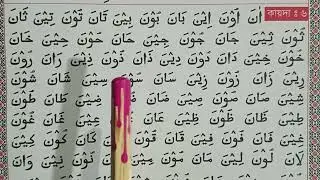 اٰنَ اُوْنَ اِيْنَ بَانَ بُوْنَ بِيْنَ تَانَ تُوْنَ تِيْنَ ثَانَ কায়দা ঃ ৬
ثُوْنَ ثِيْنَ جَانَ جُوْنَ جِيْنَ حَانَ حُوْنَ حِيْنَ خَانَ
خُوْنَ خِيْنَ دَانَ دُوْنَ دِيْنَ ذَانَ ذُوْنَ ذِيْنَ رَانَ رُوْنَ
رِيْنَ زَانَ زُوْنَ زِيْنَ سَانَ سُوْنَ سِيْنَ شَانَ شُوْنَ
شِيْنَ صَانَ صُوْنَ صِيْنَ ضَانَ ضُوْنَ ضِيْنَ طَانَ طُوْنَ
طِيْنَ ظَانَ ظُوْنَ ظِيْنَ عَانَ عُوْنَ عِيْنَ غَانَ غُوْنَ
غِيْنَ فَانَ فُوْنَ فِيْنَ قَانَ قُوْنَ قِيْنَ كَانَ كُوْنَ كِيْنَ
لَانَ لُوْنَ لِيْنَ مَانَ مُوْنَ مِيْنَ نَانَ نُوْنَ نِيْنَ وَانَ